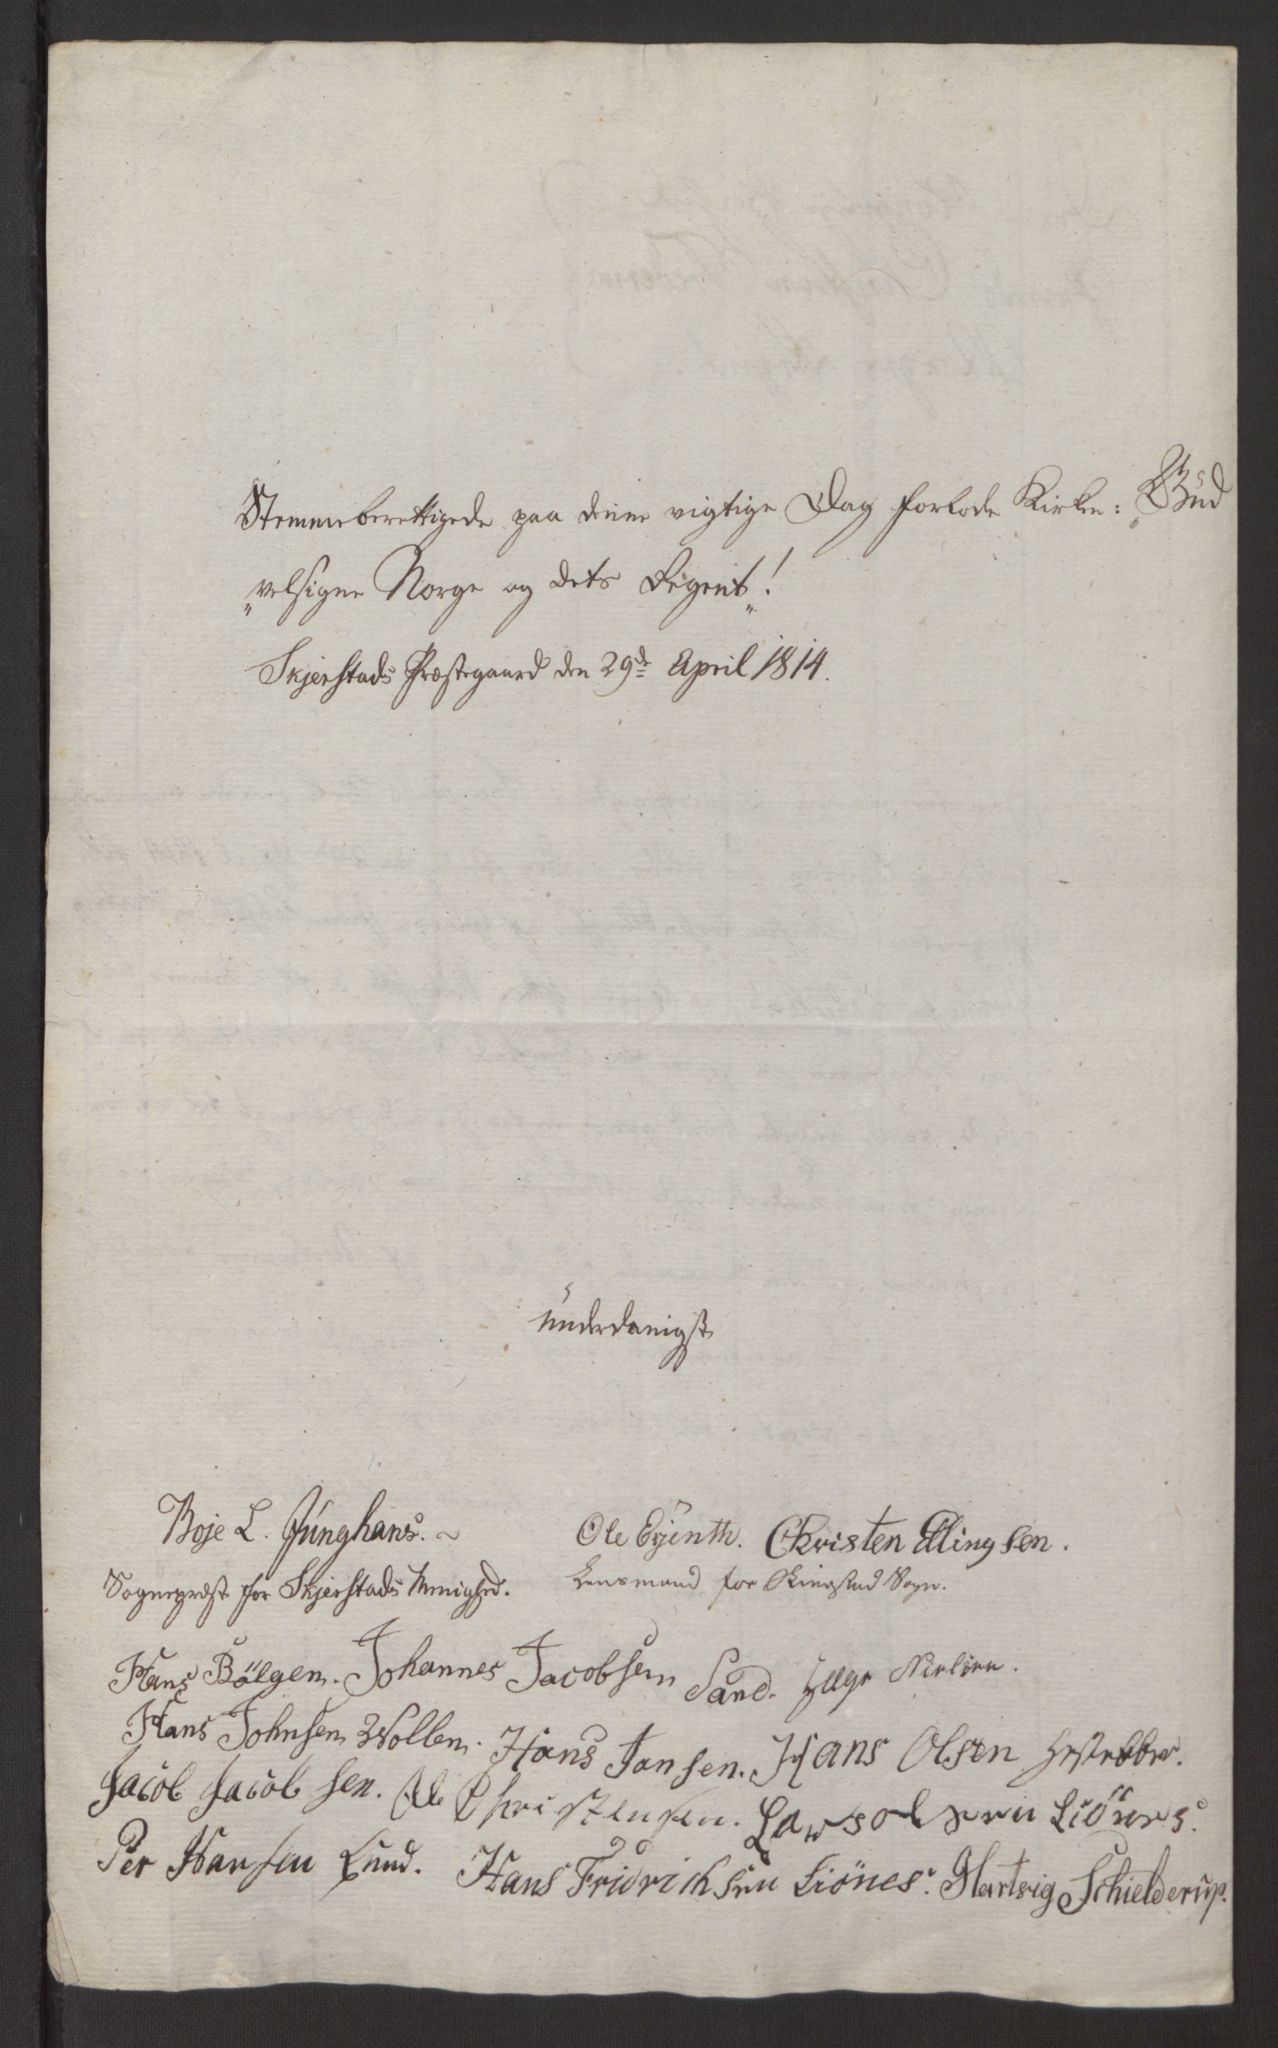 Stemmeberettigede paa denne vigtige Dag forlode Kirken: „Gud
„velsigne Norge og dets Regent„!
Skjerstads Præstegaard den 29de April 1814.
underdanigst
Boje L. Junghans. Ole Erjenth. Christen Ellingsen.
Sognepræst for Skjerstads Menighed. Lensmand for Skierstad Sogn.
Hans Bölgen. Johannes Jacobsen Sand. Helge Nielsen.
Hans Johnsen Wollen. Hans Jansen. Hans Olsen
Jacob Jacobsen. Ole Christensen. Lars olsen Liönes.
Per Hansen Lund. Hans Fridrichsen Liönes. Hartvig Schielderup.